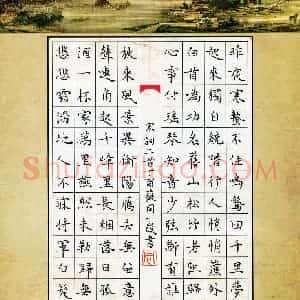 昨夜寒蛩不住鳴驚回千里夢
起來獨自繞階行人悄悄簾外
白首為功名舊山松竹老阻
心事付瑤琴知音少弦斷有誰
宋詞二首
秋來風景異衡陽雁去無留意
連角起千嶂里長煙落日孤城
酒一杯家萬里燕然未勒歸無
悠悠霜滿地人不寐將軍白發